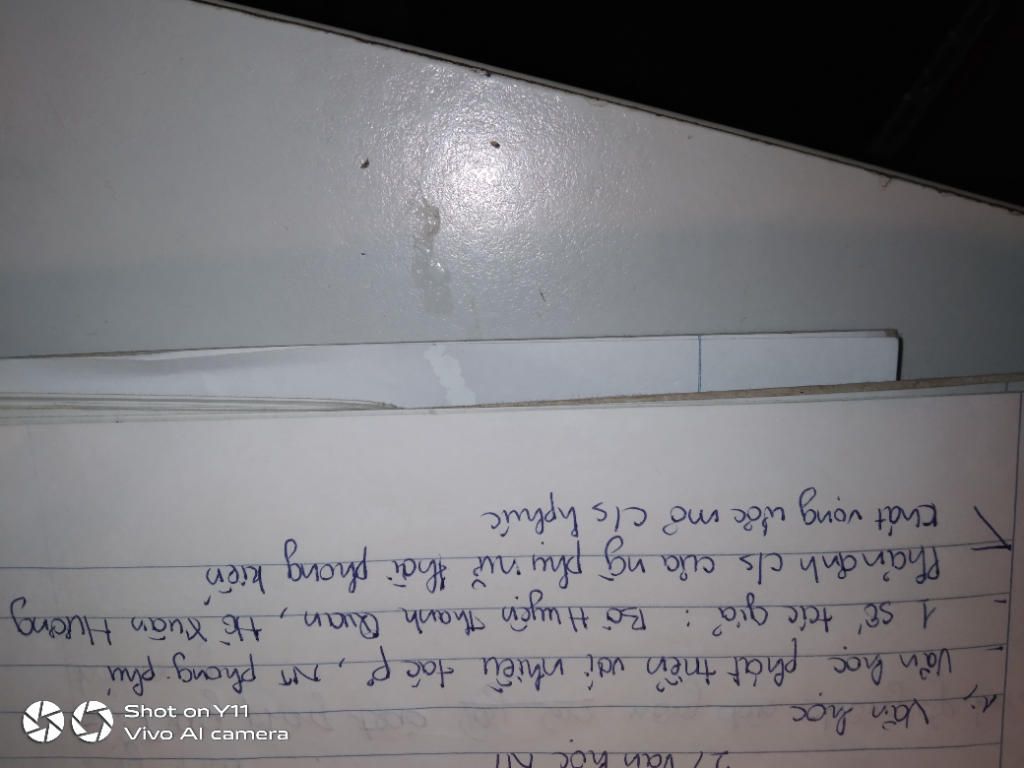 2/ Văn học
1, Văn học
- Văn học phát triển với nhiều tác p, NT phong phú
- 1 số tác giả: Bà Huyện Thanh Quan, Hồ Xuân Hương
Phản ánh c/s của ng phụ nữ thời phong kiến
Khát vọng ước mơ c/s hphúc
Shot on Y11
Vivo AI camera